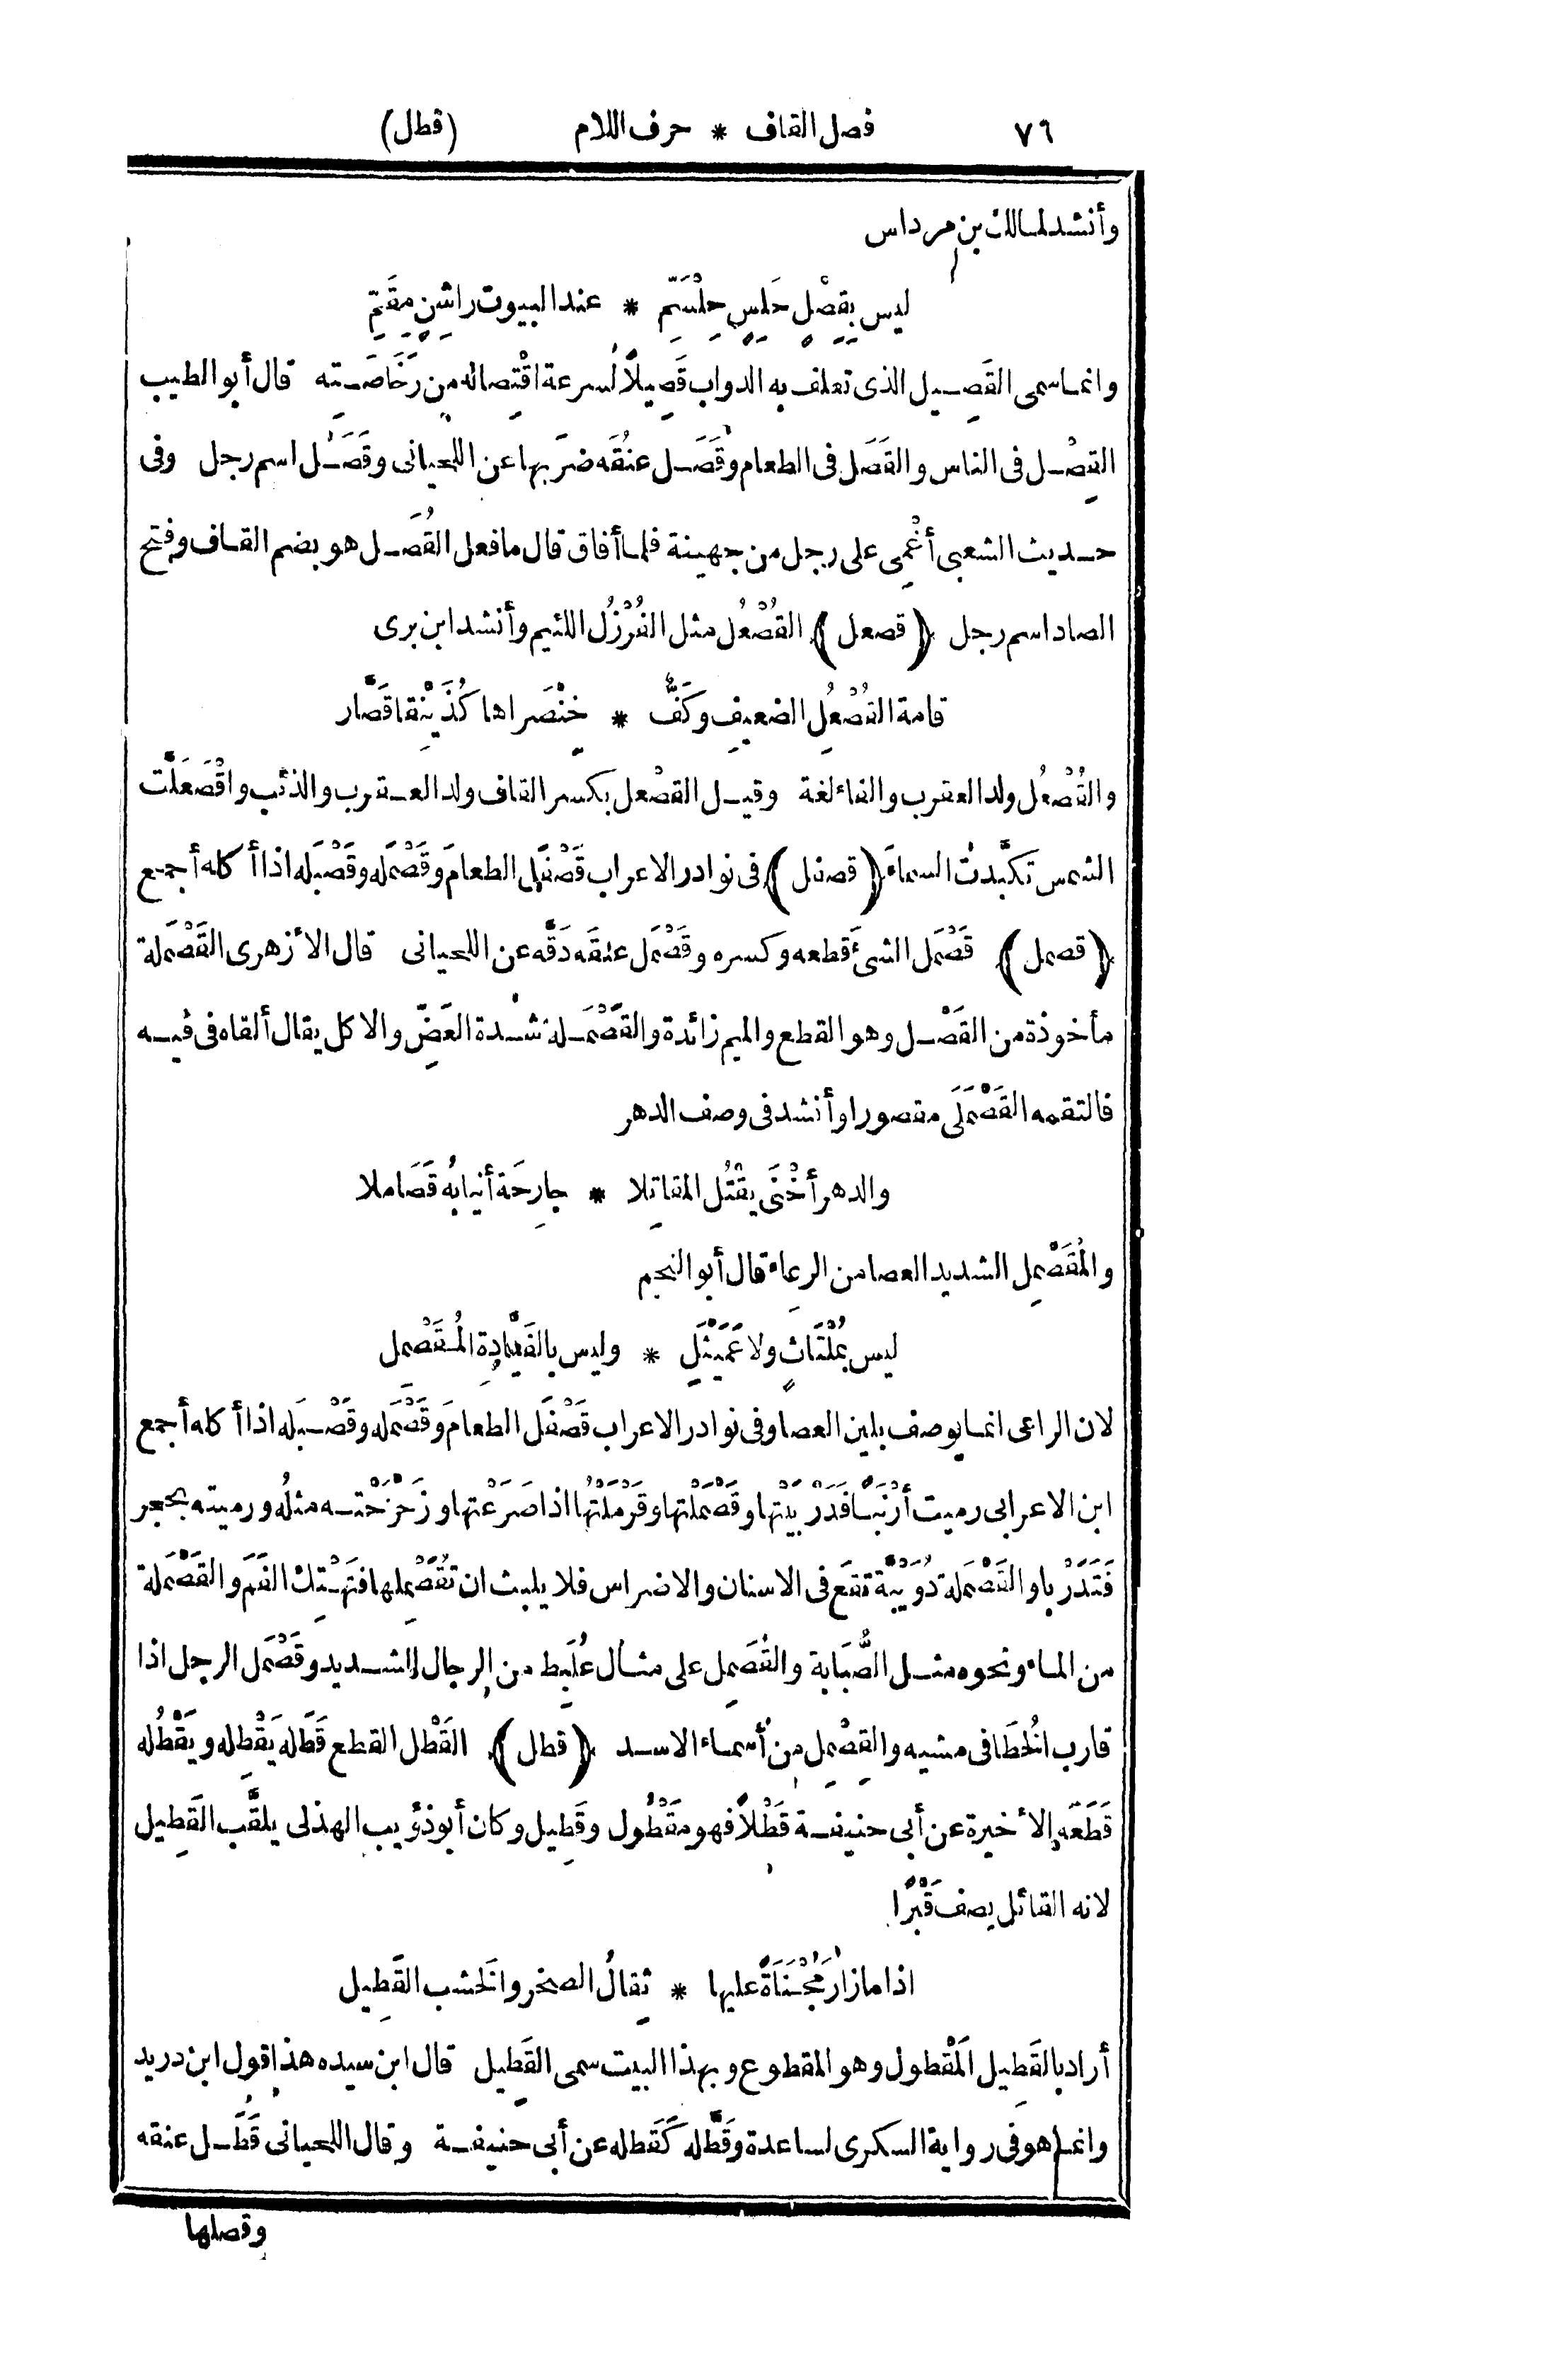 ٧٦ فصل القاف * حرف اللام (قطل)
وأنشد لمالك بن مرداس
ليس بِقِصْلٍ حَلِسٍ حِلْسَمِّ * عند البيوت راشِنٍ مِقَمِّ
وانما سمى القَصِيل الذى تعلف به الدواب قَصِيلاً لسرعة اقْتِصاله من رَخَاصَتِه قال أبو الطيب
القِصْل فى الناس والقَصَل فى الطعام وقَصَل عنُقَه ضرَبها عن اللحيانى وقَصَل اسم رجل وفى
حديث الشعبى أُغْمِى على رجل من جهينة فلما أفاق قال ما فعل القُصَل هو بضم القاف وفتح
الصاد اسم رجل (قصعل) القُصْعُل مثل الفُرْزُل اللئيم وأنشد ابن برى
قامة القُصْعُلِ الضعيفِ وكَفٌّ * خِنْصَراها كُذَيْنِقا قَصَّار
والقُصْعُل ولد العقرب والفاء لغة وقيل القِصْعل بكسر القاف ولد العقرب والذئب واقْصَعَلَّت
الشمس تكبَّدتْ السماءَ (قصفل) فى نوادر الاعراب قَصْفَل الطعامَ وقَصْمَله وقَصْبَله اذا أكله أجمع
(قصمل) قَصْمَل الشىءَ قطعه وكسره وقَصْمَل عنقَه دَقَّه عن اللحيانى قال الأزهرى القَصْمَلة
مأخوذة من القَصْل وهو القطع والميم زائدة والقَصْمَلة شدة العَضّ والاكل يقال ألقاه فى فيه
فالتقمه القَصْمَلَى مقصورا وأنشد فى وصف الدهر
والدهر أَخْنَى يقْتُل المقاتِلا * جارِحَة أنيابُه قَصَامِلا
والمُقَصْمِل الشديد العصا من الرِعاء قال أبو النجم
ليس بمُلْتَاثٍ ولا عَمَيْثَلِ * وليس بالفَيَّادةِ المُقَصْمِل
لان الراعى انما يوصف بلين العصا وفى نوادر الاعراب قَصْفَل الطعامَ وقَصْمَله وقَصْبَله اذا أكله أجمع
ابن الاعرابى رميت أَرْنَبًا فَدَرْبَيْتها وقَصْمَلْتها وقَرْمَلْتُها اذا صَرَعْتها وزَحْزَحْته مثلُه ورميته بحجر
فَتَدَرْبا والقَصْمَلة دُوَيْبَّة تقَع فى الاسنان والاضراس فلا يلبث ان تُقَصْمِلها فتَهْتِك الفَمَ والقَصْمَلة
من الماء ونحوه مثل الصُّبَابة والقُصَمِل على مثال عُلَبِط من الرجال الشديد وقَصْمَل الرجل اذا
قارب الخُطَا فى مشيه والقِصْمِل من أسماء الاسد (قطل) القَطْل القطع قَطَله يَقْطِله ويَقْطُله
قَطَعَه الأخيرة عن أبى حنيفة قَطْلاً فهو مَقْطُول وقَطِيل وكان أبو ذؤيب الهذلى يلقَّب القَطِيل
لانه القائل يصف قَبْرًا
اذا ما زارَ مُجْنَأَةً عليها * ثِقالُ الصخر والخَشب القَطِيل
أراد بالقَطِيل المَقْطول وهو المقطوع وبهذا البيت سمى القَطِيل قال ابن سيده هذا قول ابن دريد
وانما هو فى رواية السكرى لساعدة وقَطَّله كَقَطَله عن أبى حنيفة وقال اللحيانى قَطَل عنقه
وقصلها